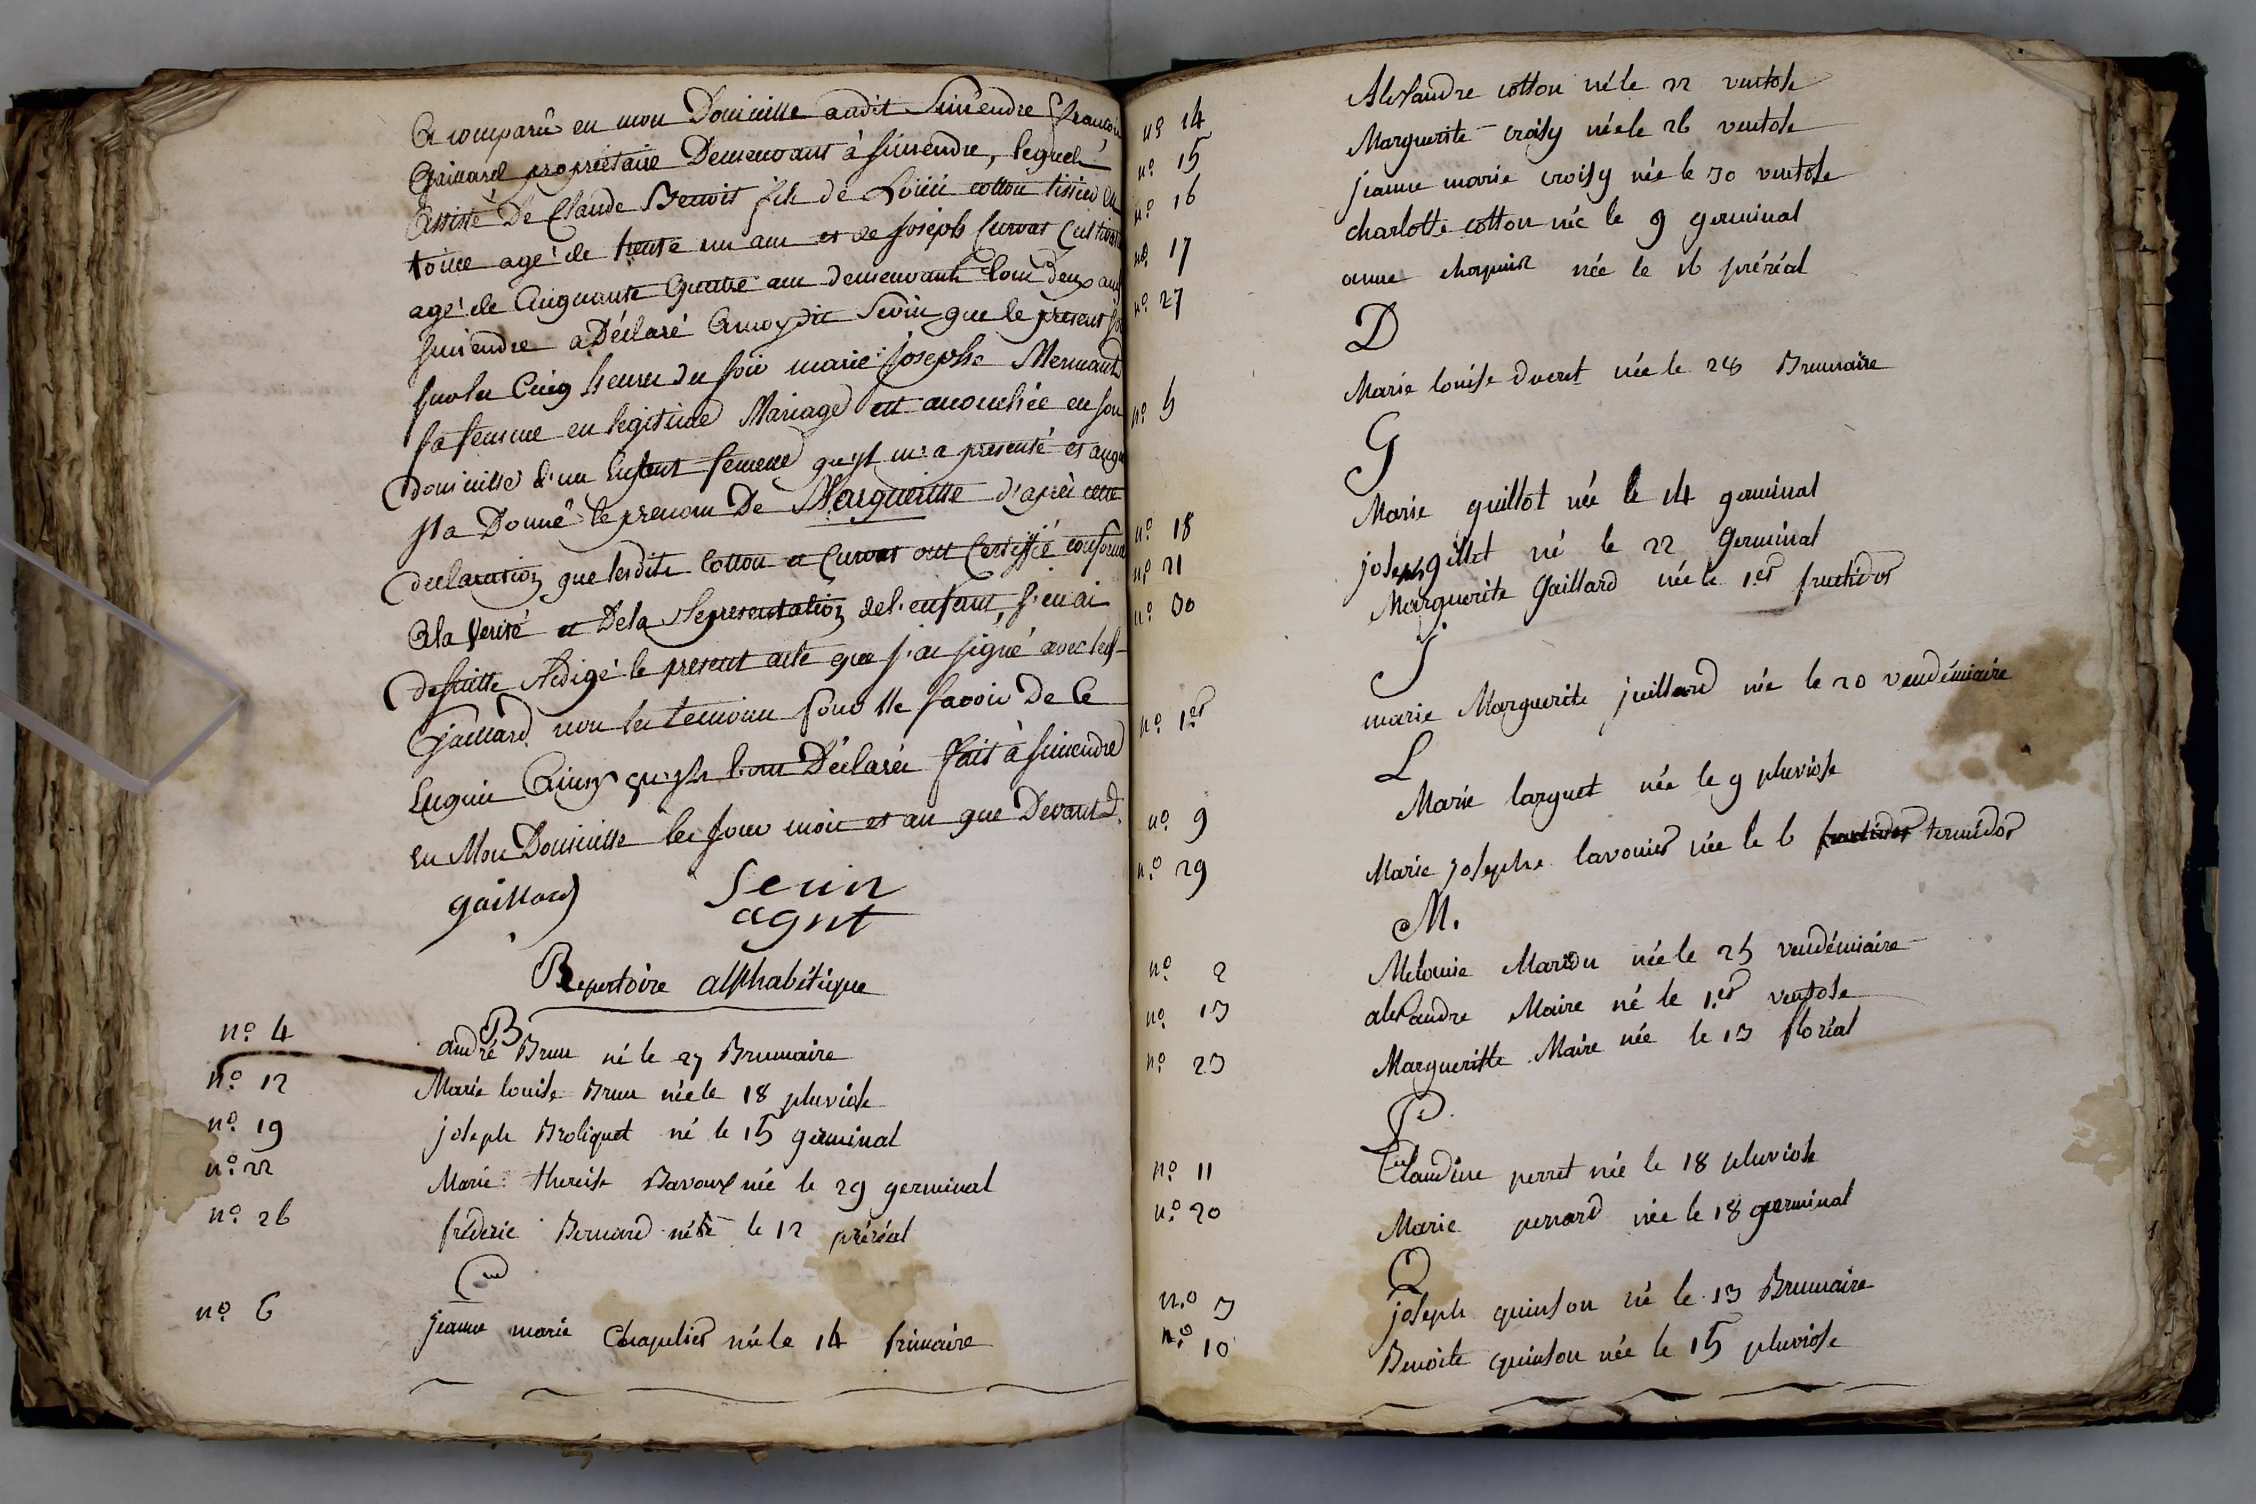 a comparu en mon Domicille audit Surrendre françoi
Gaillard proprietaire Demeurant à Surrendre, lequel
Assisté De Claude Benoit fils de Loüis cotton tissieu en
toille agé de trente un ans et de Joseph Curvat Cultivat
agé de Cinquante Quatre ans demeurants tous deux aud
Surrendre a Déclaré a moy dit Serin que le present jo
sur les Cinq heures du soir marie josephe Mermant
sa femme en legitime Mariage est accouchée en son
Domicille d'un Enfant femelle qu'yl m'a presenté et auqu
jl a Donné le prenom De Marguerite d'après cette
declaration que lesdits Cotton et Curvat ont Certiffié conforme
a la verité et De la Representation de l'enfant, j'en ai
desuitte Rédigé le present acte que j'ai signé avec led
Gaillard non les temoins pour ne savoir De ce
Enquis Ainsy qu'yls l'ont Déclarés fait à Surrendre
en Mon Domicille les jour mois et an que Devant
gaillard Serin
agnt
Repertoire alphabétique
B
n.o 4 andré Brun né le 27 Brumaire
n.o 12 Marie louise Brun née le 18 pluviose
n.o 19 joseph Broliquet né le 15 germinal
n.o 22 Marie therese Bavoux née le 29 germinal
n.o 26 fréderic Bernard né le 12 préréal
C
n.o 6 jeanne marie Chapelier née le 14 frimaire
n.o 14 Alexandre cotton né le 22 ventose
n.o 15 Marguerite croisy née le 26 ventose
n.o 16 jeanne marie croisy née le 30 ventose
n.o 17 charlotte cotton née le 9 germinal
n.o 27 anne née le 16 préréal
D
n.o 5 Marie louise ducret née le 28 Brumaire
G
n.o 18 Marie guillot née le 14 germinal
n.o 21 joseph gillet né le 22 Germinal
n.o 30 Marguerite Gaillard née le 1.er fructidor
J
n.o 1.er marie Marguerite juillard née le 20 vendémiaire
L
n.o 9 Marie larguet née le 9 pluviose
n.o 29 Marie josephe lavonier née le 6 fructidor termidor
M.
n.o 2 Mélonie née le 25 vendémiaire
n.o 13 alexandre Maire né le 1.er ventose
n.o 23 Margueritte Maire née le 13 floréal
P.
n.o 11 Claudine perret née le 18 pluviose
n.o 20 Marie perrard née le 18 germinal
Q
n.o 3 joseph quinson né le 13 Brumaire
n.o 10 Benoite quinson née le 15 pluviose